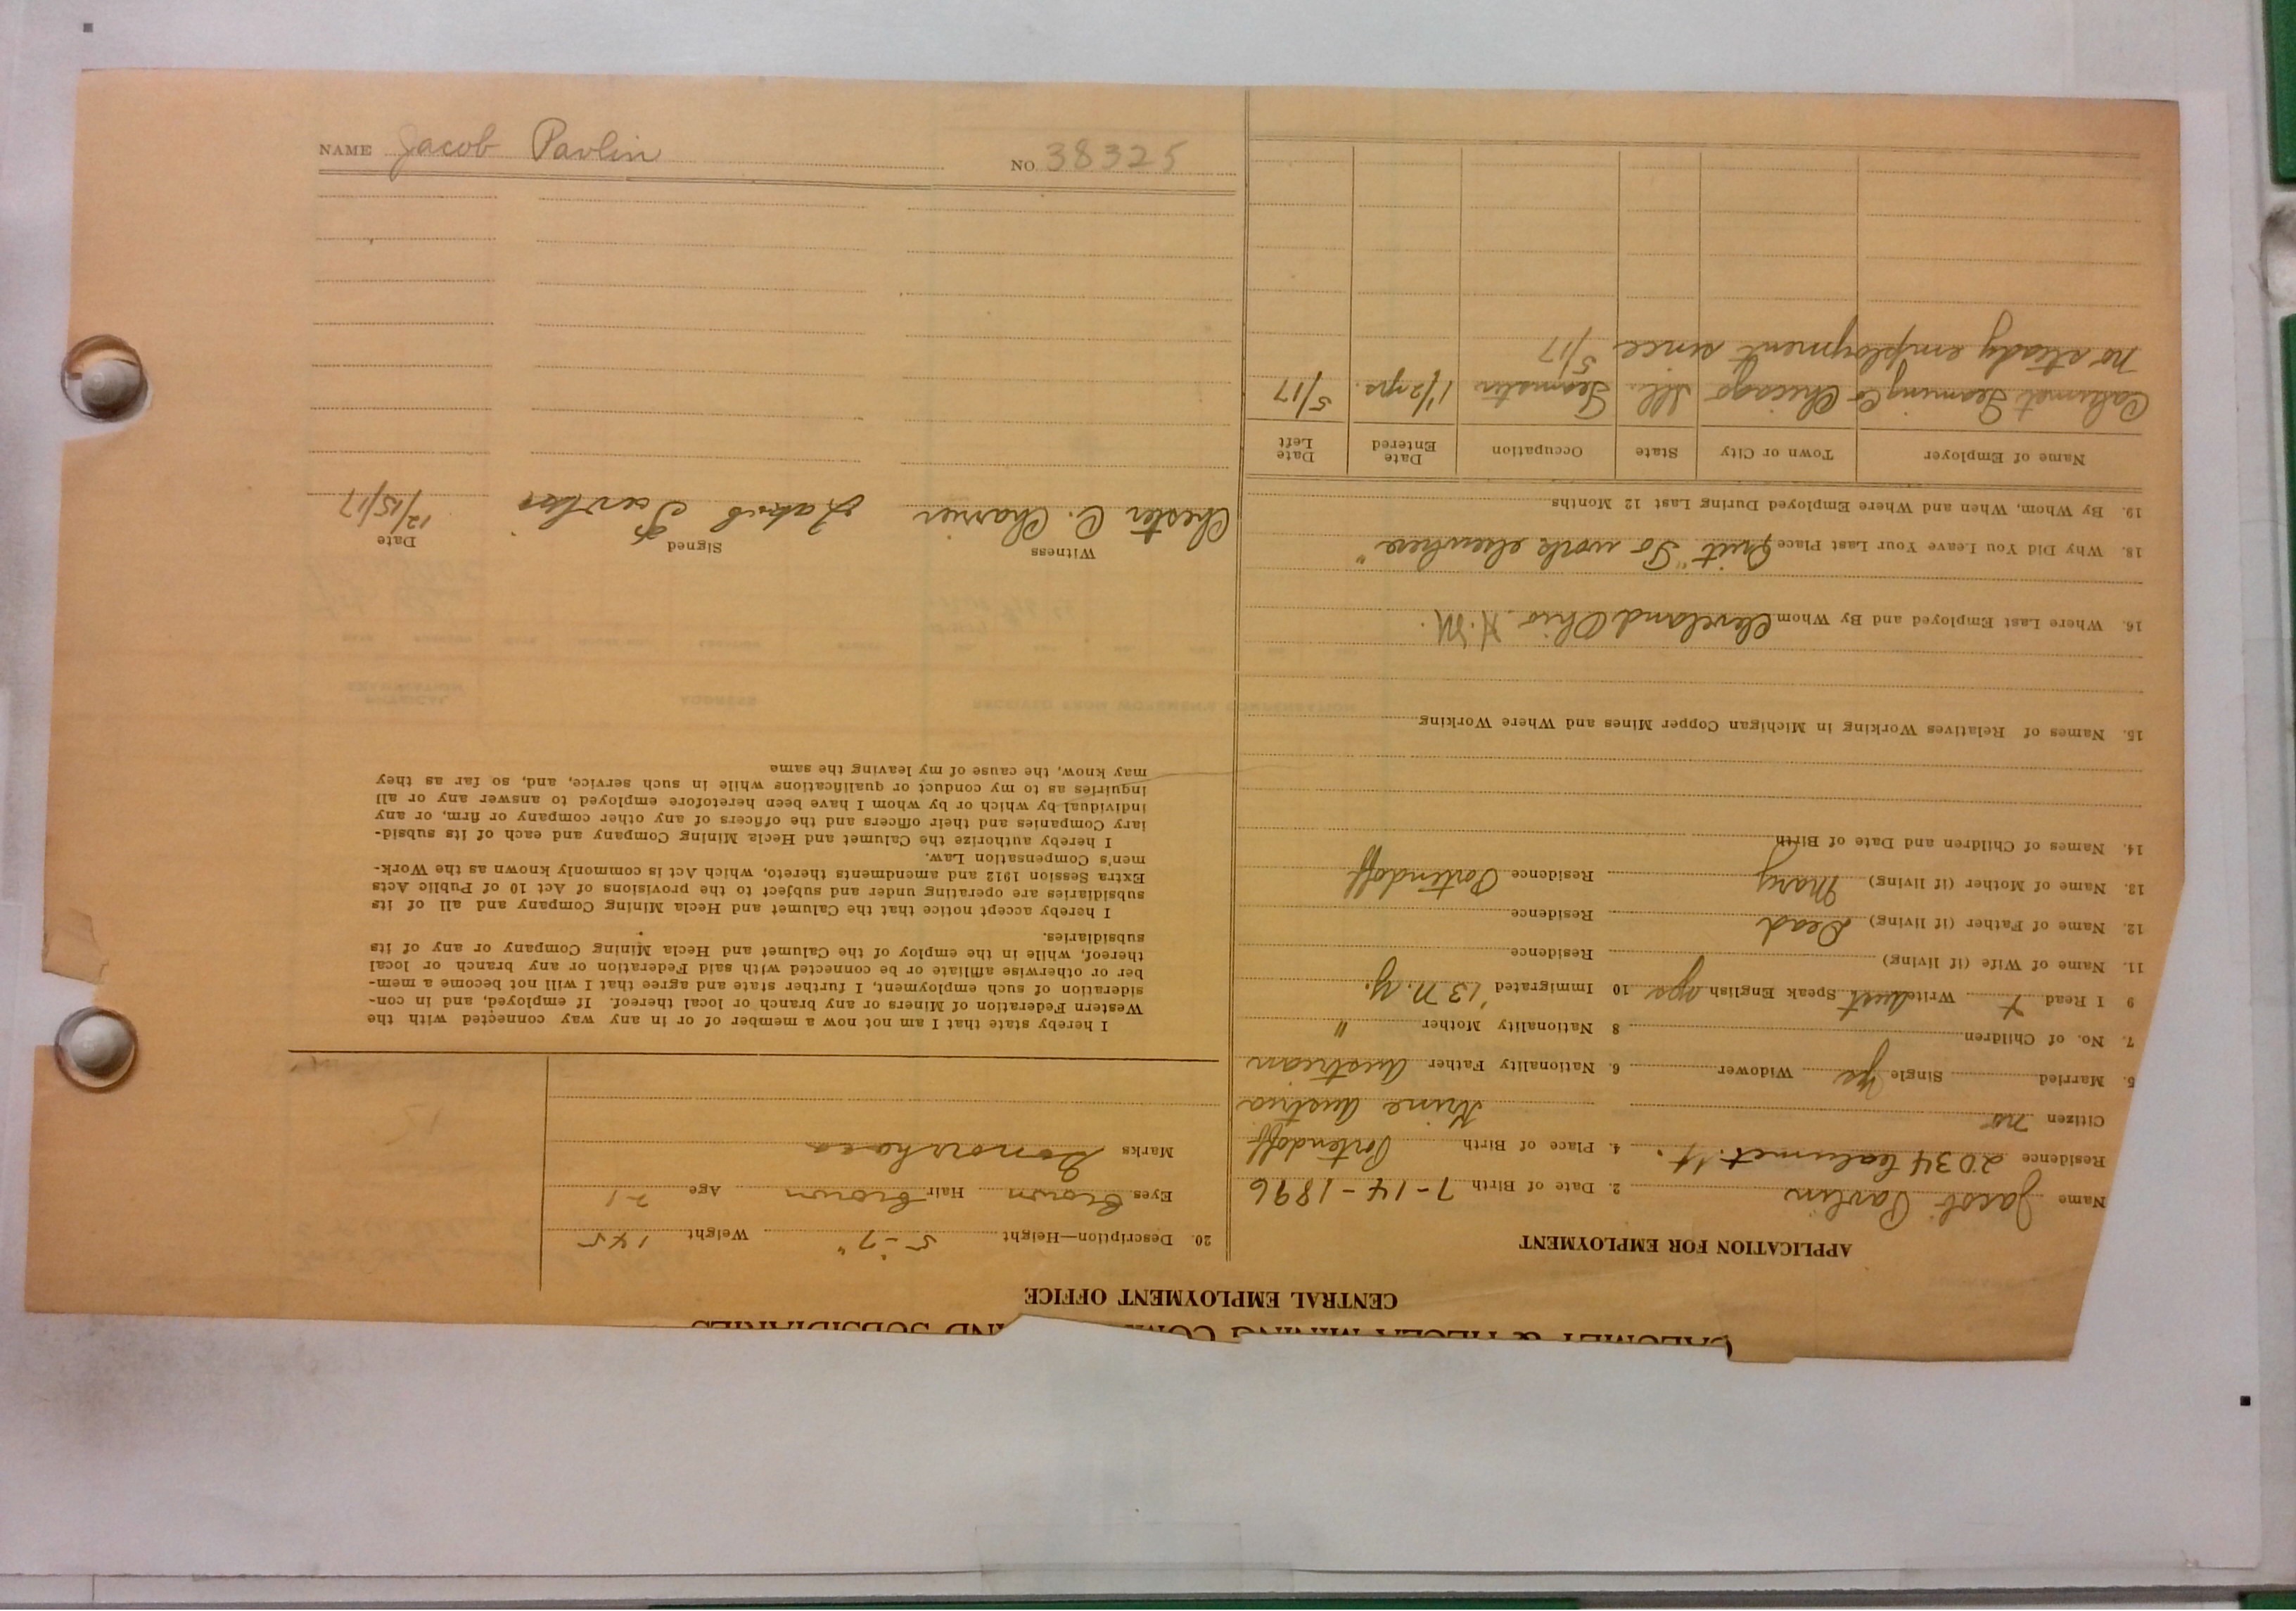 CALUMET & HECLA MINING COM ND SUBSIDIARIES
CENTRAL EMPLOYMENT OFFICE
APPLICATION FOR EMPLOYMENT
Name Jacob Pavlin 2. Date of Birth 7-14-1896
Residence 2034 Calumet St. 4. Place of Birth Portendoff
Citizen no Krine Austria
5. Married Single yes Widower 6. Nationality Father Austrian
7. No. of Children 8 Nationality Mother "
9 I Read x Write Speak English 10 Immigrated '13 N.Y.
11. Name of Wife (if living) Residence
12. Name of Father (if living) Dead Residence
13. Name of Mother (if living) Mary Residence Portendoff
14. Names of Children and Date of Birth
15. Names of Relatives Working in Michigan Copper Mines and Where Working
16. Where Last Employed and By Whom Cleveland Ohio. H.M.
18. Why Did You Leave Your Last Place Quit "To work elsewhere"
19. By Whom, When and Where Employed During Last 12 Months
Name of Employer Town or City State Occupation Date Entered Date Left
Calumet Teaming Co Chicago Ill. Teamster 1 1/2 yrs. 5/17
no steady employment since 5/17
20. Description—Height 5-7" Weight 145
Eyes Brown Hair Brown Age 21
Marks
I hereby state that I am not now a member of or in any way connected with the
Western Federation of Miners or any branch or local thereof. If employed, and in con-
sideration of such employment, I further state and agree that I will not become a mem-
ber or otherwise affiliate or be connected with said Federation or any branch or local
thereof, while in the employ of the Calumet and Hecla Mining Company or any of its
subsidiaries.
I hereby accept notice that the Calumet and Hecla Mining Company and all of its
subsidiaries are operating under and subject to the provisions of Act 10 of Public Acts
Extra Session 1912 and amendments thereto, which Act is commonly known as the Work-
men's Compensation Law.
I hereby authorize the Calumet and Hecla Mining Company and each of its subsid-
iary Companies and their officers and the officers of any other company or firm, or any
individual by which or by whom I have been heretofore employed to answer any or all
inquiries as to my conduct or qualifications while in such service, and, so far as they
may know, the cause of my leaving the same
Witness Signed Date
Chester C. Charrier 12/15/17
NAME Jacob Pavlin NO. 38325